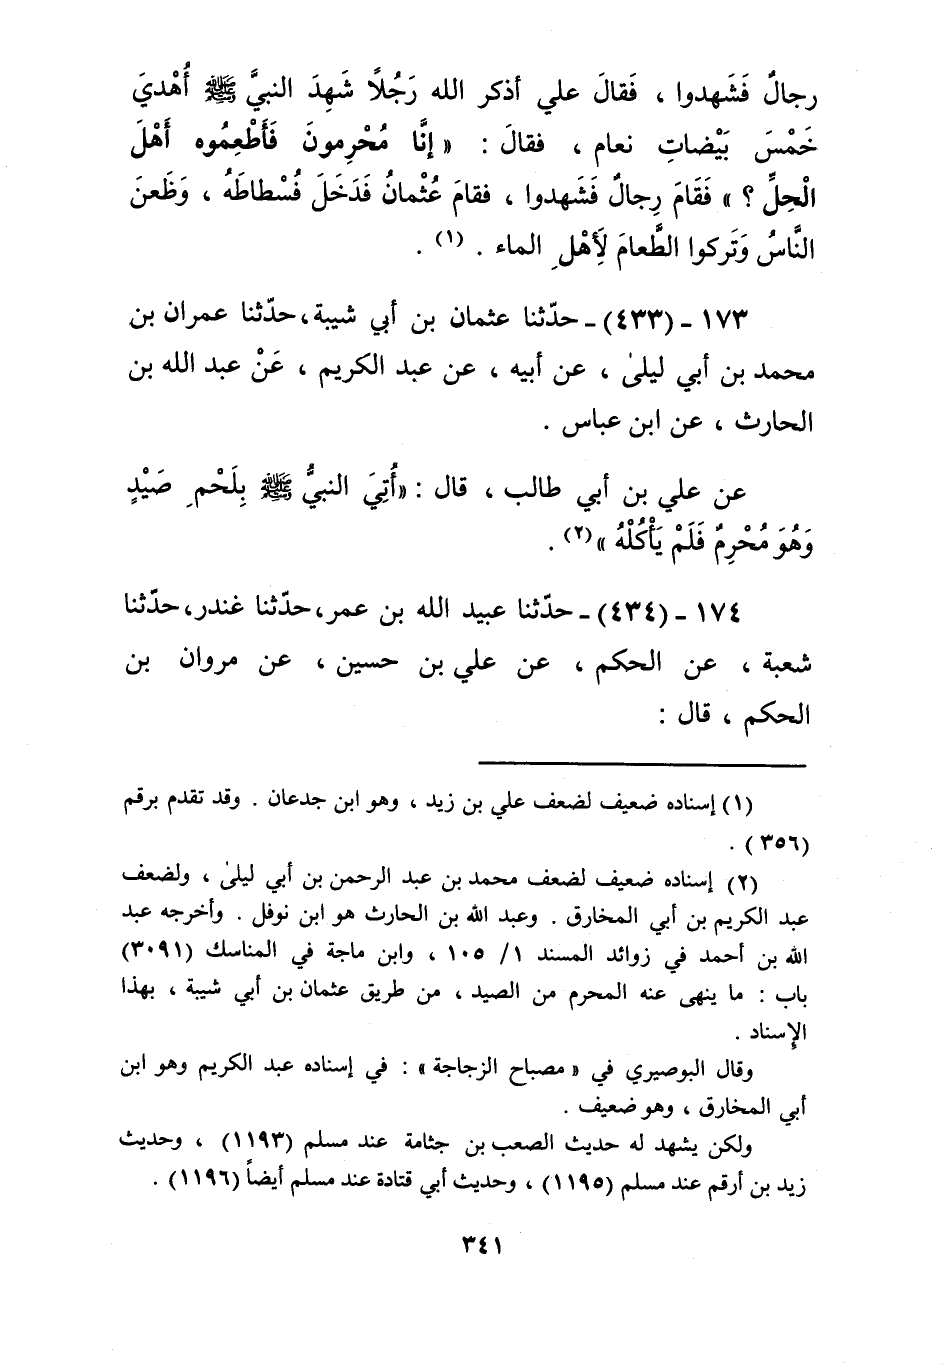 رجالٌ فَشَهدوا ، فَقالَ علي أذكر الله رَجُلًا شَهِدَ النبيَّ ﷺ أُهْديَ
خَمْسَ بَيْضاتِ نعام ، فقالَ : « إنَّا مُحْرِمونَ فَأَطْعِمُوه أَهْلَ
الْحِلِّ ؟ » فَقَامَ رِجالٌ فَشَهدوا ، فقامَ عُثْمانُ فَدَخَلَ فُسْطاطَهُ ، وَظَعنَ
النَّاسُ وَتَركوا الطَّعامَ لَأِهْلِ الماء . (١) .
١٧٣ - (٤٣٣) - حدّثنا عثمان بن أبي شيبة، حدّثنا عمران بن
محمد بن أبي ليلىٰ ، عن أبيه ، عن عبد الكريم ، عَنْ عبد الله بن
الحارث ، عن ابن عباس .
عن علي بن أبي طالب ، قال : «أُتِيَ النبيُّ ﷺ بِلَحْمِ صَيْدٍ
وَهُوَ مُحْرِمٌ فَلَمْ يَأْكُلْهُ »(٢) .
١٧٤ - (٤٣٤) - حدّثنا عبيد الله بن عمر، حدّثنا غندر، حدّثنا
شعبة ، عن الحكم ، عن علي بن حسين ، عن مروان بن
الحكم ، قال :
(١) إسناده ضعيف لضعف علي بن زيد ، وهو ابن جدعان . وقد تقدم برقم
(٣٥٦) .
(٢) إسناده ضعيف لضعف محمد بن عبد الرحمن بن أبي ليلىٰ ، ولضعف
عبد الكريم بن أبي المخارق . وعبد الله بن الحارث هو ابن نوفل . وأخرجه عبد
الله بن أحمد في زوائد المسند ١/ ١٠٥ ، وابن ماجة في المناسك (٣٠٩١)
باب : ما ينهى عنه المحرم من الصيد ، من طريق عثمان بن أبي شيبة ، بهذا
الإسناد .
وقال البوصيري في « مصباح الزجاجة » : في إسناده عبد الكريم وهو ابن
أبي المخارق ، وهو ضعيف .
ولكن يشهد له حديث الصعب بن جثامة عند مسلم (١١٩٣) ، وحديث
زيد بن أرقم عند مسلم (١١٩٥) ، وحديث أبي قتادة عند مسلم أيضاً (١١٩٦) .
٣٤١